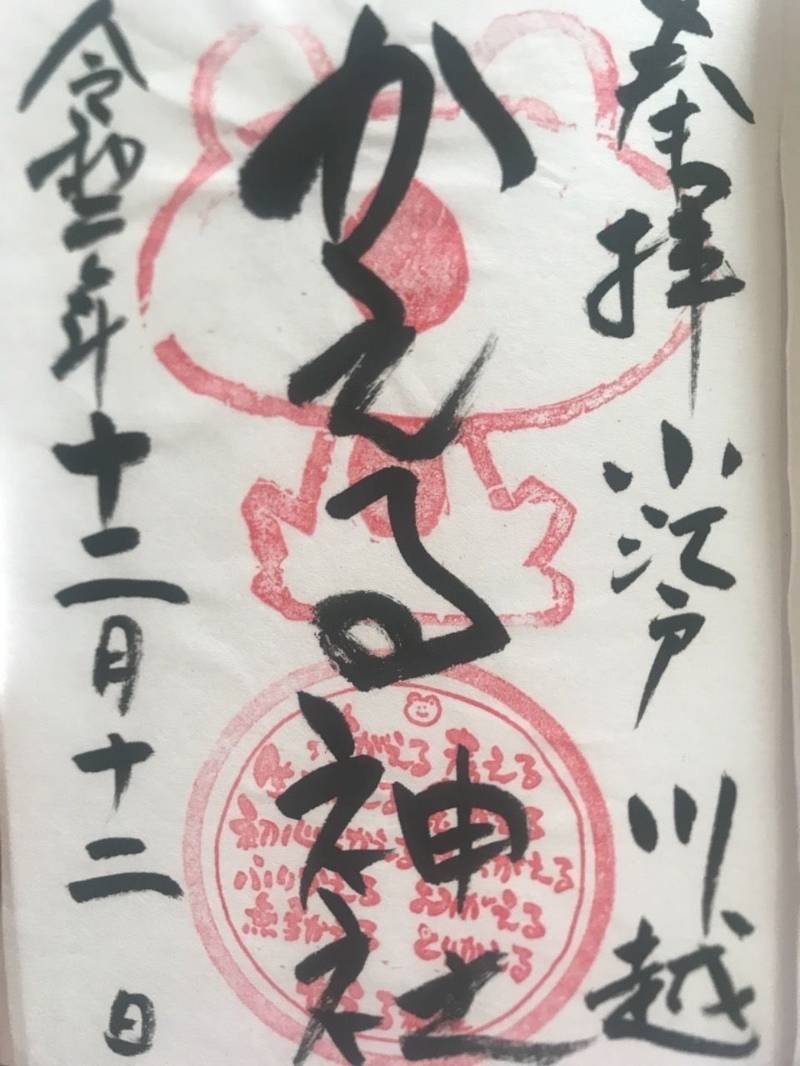 奉拝 小江戸 川越
かえる神社
令和二年十二月十二日
考える
初心にかえる
ふりかえる
よみがえる
無事かえる
とりかえる